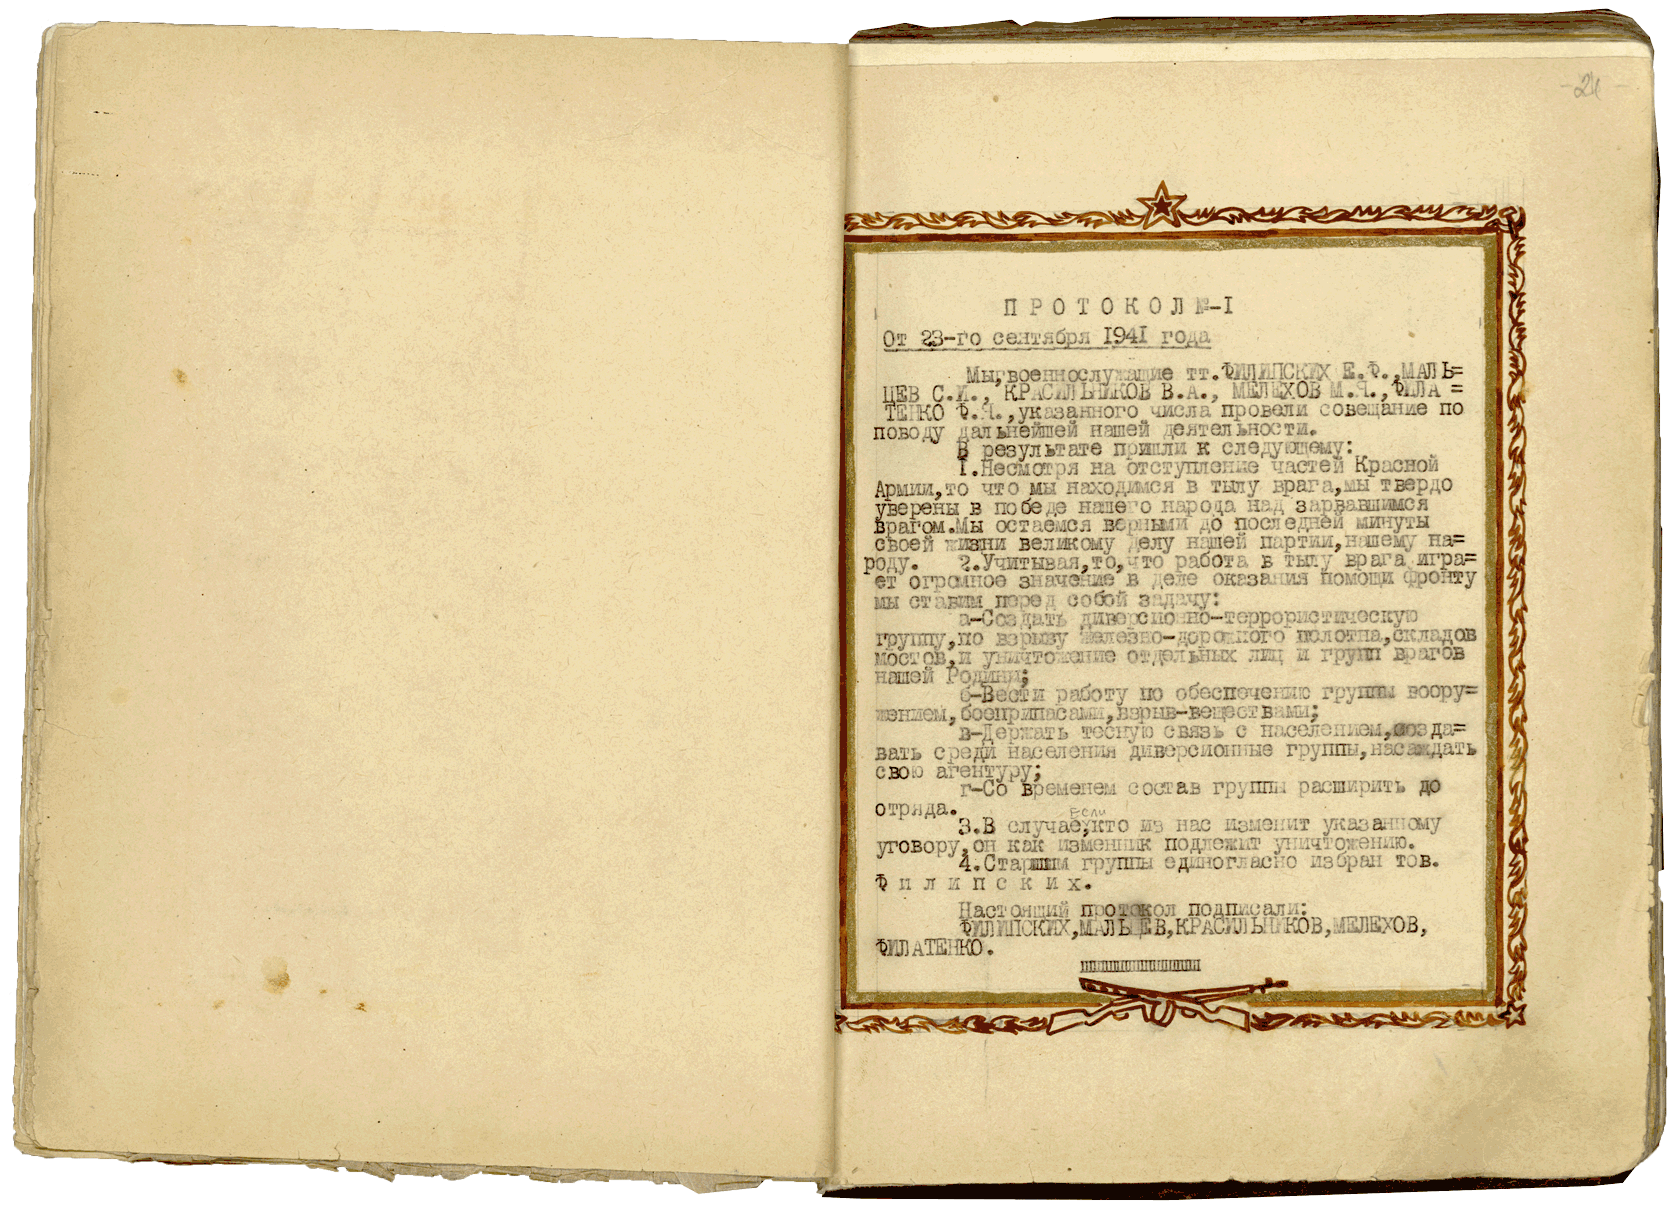 -24-
П Р О Т О К О Л №-I
От 23-го сентября 1941 года
Мы,военнослужащие тт.ФИЛИПСКИХ Е.Ф.,МАЛЬ=
ЦЕВ С.И., КРАСИЛЬНИКОВ В.А., МЕЛЕХОВ М.Я.,ФИЛА =
ТЕНКО Ф.Я.,указанного числа провели совещание по
поводу дальнейшей нашей деятельности.
В результате пришли к следующему:
I.Несмотря на отступление частей Красной
Армии,то что мы находимся в тылу врага,мы твердо
уверены в победе нашего народа над зарвавшимся
врагом.Мы остаемся верными до последней минуты
своей жизни великому делу нашей партии,нашему на=
роду. 2.Учитывая,то,что работа в тылу врага игра=
ет огромное значение в деле оказания помощи фронту
мы ставим перед собой задачу:
а-Создать диверсионно-террористическую
группу,по взрыву железно-дорожного полотна,складов
мостов,и уничтожение отдельных лиц и групп врагов
нашей Родины;
б-Вести работу по обеспечению группы воору=
жением,боеприпасами,взрыв-веществами;
в-Держать тесную связь с населением,созда=
вать среди населения диверсионные группы,насаждать
свою агентуру;
г-Со временем состав группы расширить до
отряда.
если
3.В случае,кто из нас изменит указанному
уговору,он как изменник подлежит уничтожению.
4.Старшим группы единогласно избран тов.
Ф и л и п с к и х.
Настоящий протокол подписали:
ФИЛИПСКИХ,МАЛЬЦЕВ,КРАСИЛЬНИКОВ,МЕЛЕХОВ,
ФИЛАТЕНКО.